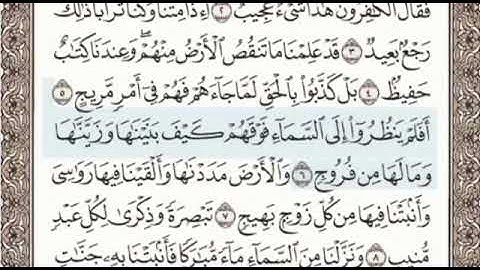 فَقَالَ ٱلْكَٰفِرُونَ هَٰذَا شَىْءٌ عَجِيبٌ ٢ أَءِذَا مِتْنَا وَكُنَّا تُرَابًا ذَٰلِكَ
رَجْعٌۢ بَعِيدٌ ٣ قَدْ عَلِمْنَا مَا تَنقُصُ ٱلْأَرْضُ مِنْهُمْ وَعِندَنَا كِتَٰبٌ
حَفِيظٌۢ ٤ بَلْ كَذَّبُوا۟ بِٱلْحَقِّ لَمَّا جَآءَهُمْ فَهُمْ فِىٓ أَمْرٍ مَّرِيجٍ ٥
أَفَلَمْ يَنظُرُوٓا۟ إِلَى ٱلسَّمَآءِ فَوْقَهُمْ كَيْفَ بَنَيْنَٰهَا وَزَيَّنَّٰهَا
وَمَا لَهَا مِن فُرُوجٍ ٦ وَٱلْأَرْضَ مَدَدْنَٰهَا وَأَلْقَيْنَا فِيهَا رَوَٰسِىَ
وَأَنۢبَتْنَا فِيهَا مِن كُلِّ زَوْجٍۭ بَهِيجٍ ٧ تَبْصِرَةً وَذِكْرَىٰ لِكُلِّ عَبْدٍ
مُّنِيبٍ ٨ وَنَزَّلْنَا مِنَ ٱلسَّمَآءِ مَآءً مُّبَٰرَكًا فَأَنۢبَتْنَا بِهِۦ جَنَّٰتٍ